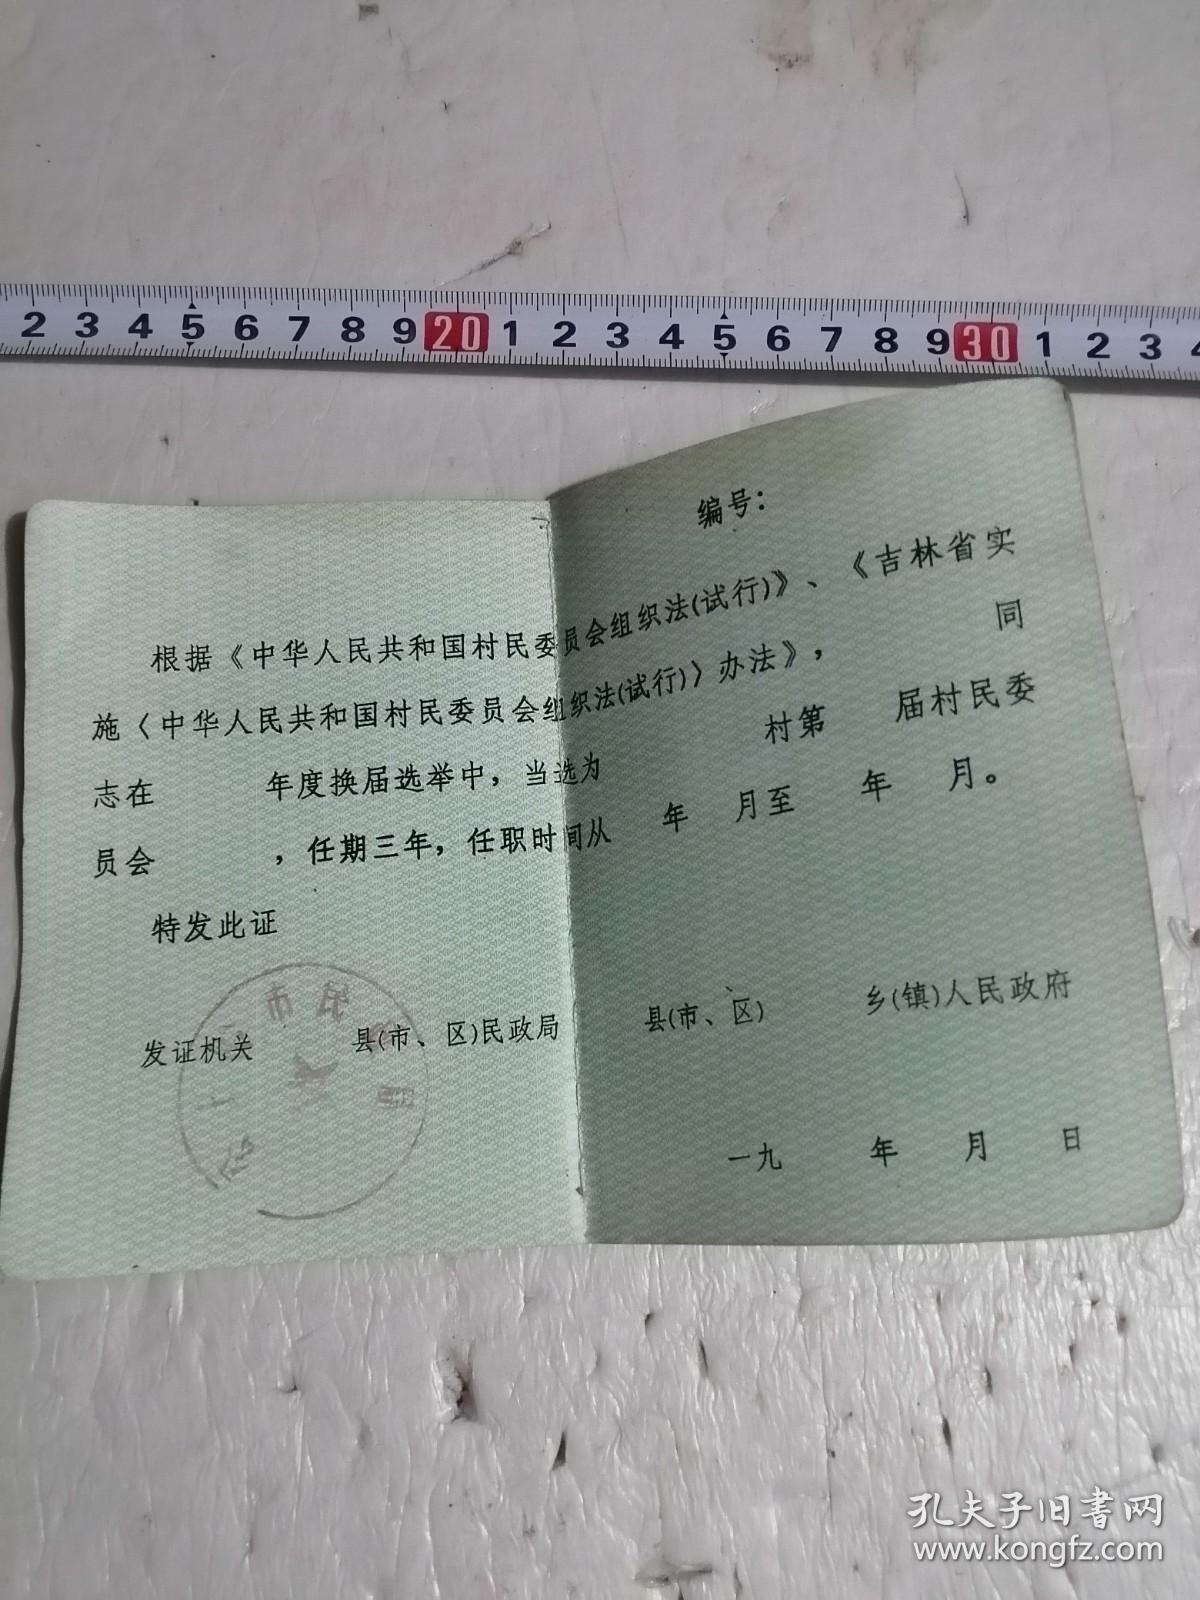 2 3 4 5 6 7 8 9 20 1 2 3 4 5 6 7 8 9 30 1 2 3 4
编号：
根据《中华人民共和国村民委员会组织法(试行)》、《吉林省实
施〈中华人民共和国村民委员会组织法(试行)〉办法》， 同
志在 年度换届选举中，当选为 村第 届村民委
员会 ，任期三年，任职时间从 年 月至 年 月。
特发此证
发证机关 县(市、区)民政局 县(市、区) 乡(镇)人民政府
一九 年 月 日
孔夫子旧书网
www.kongfz.com